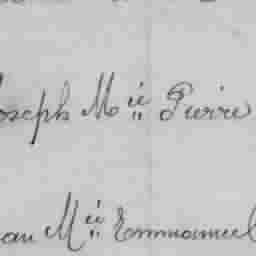 Joseph M^ie Pierre
Jean M^ie Emmanuel